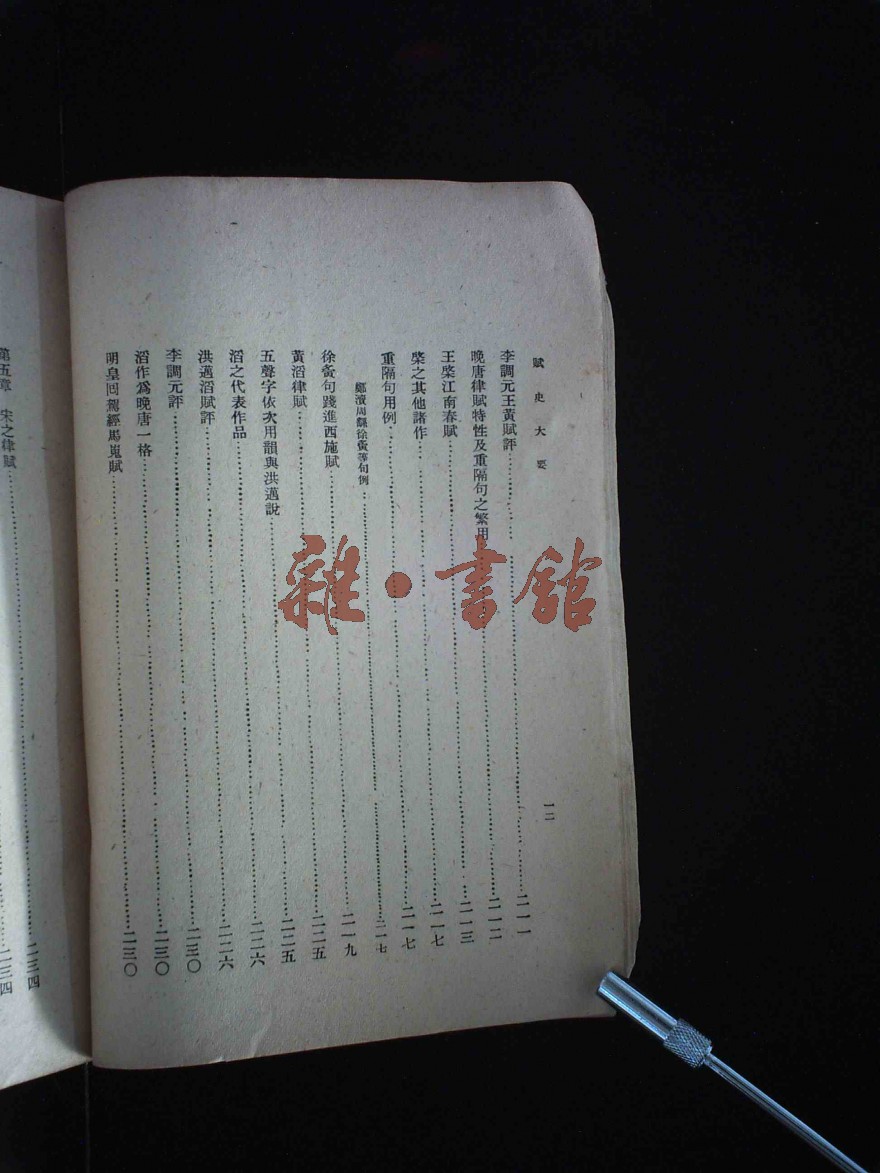 賦史大要
一二
李調元王黃賦評……二一一
晚唐律賦特性及重隔句之繁用……二一二
王棨江南春賦……二一三
棨之其他諸作……二一七
重隔句用例……二一七
鄭瀆周繇徐夤等句例……二一七
徐夤句踐進西施賦……二一九
黃滔律賦……二二五
五聲字依次用韻與洪邁說……二二五
滔之代表作品……二二六
洪邁滔賦評……二二六
李調元評……二三〇
滔作爲晚唐一格……二三〇
明皇回駕經馬嵬賦……二三〇
第五章 宋之律賦……二三四
二三四
雜·書館